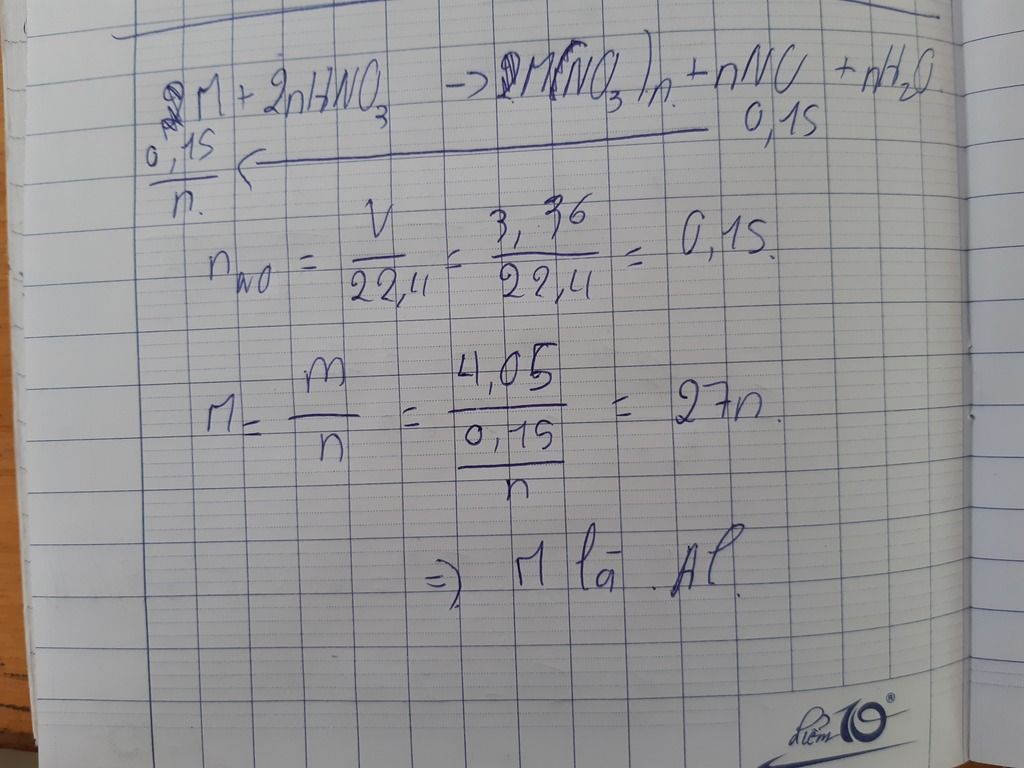 M + 2nHNO3 -> M(NO3)n + nNO + nH2O
0,15
0,15/n.
nNO = V/22,4 = 3,36/22,4 = 0,15.
M = m/n = 4,05/(0,15/n) = 27n.
=> M là Al.
điểm 10®